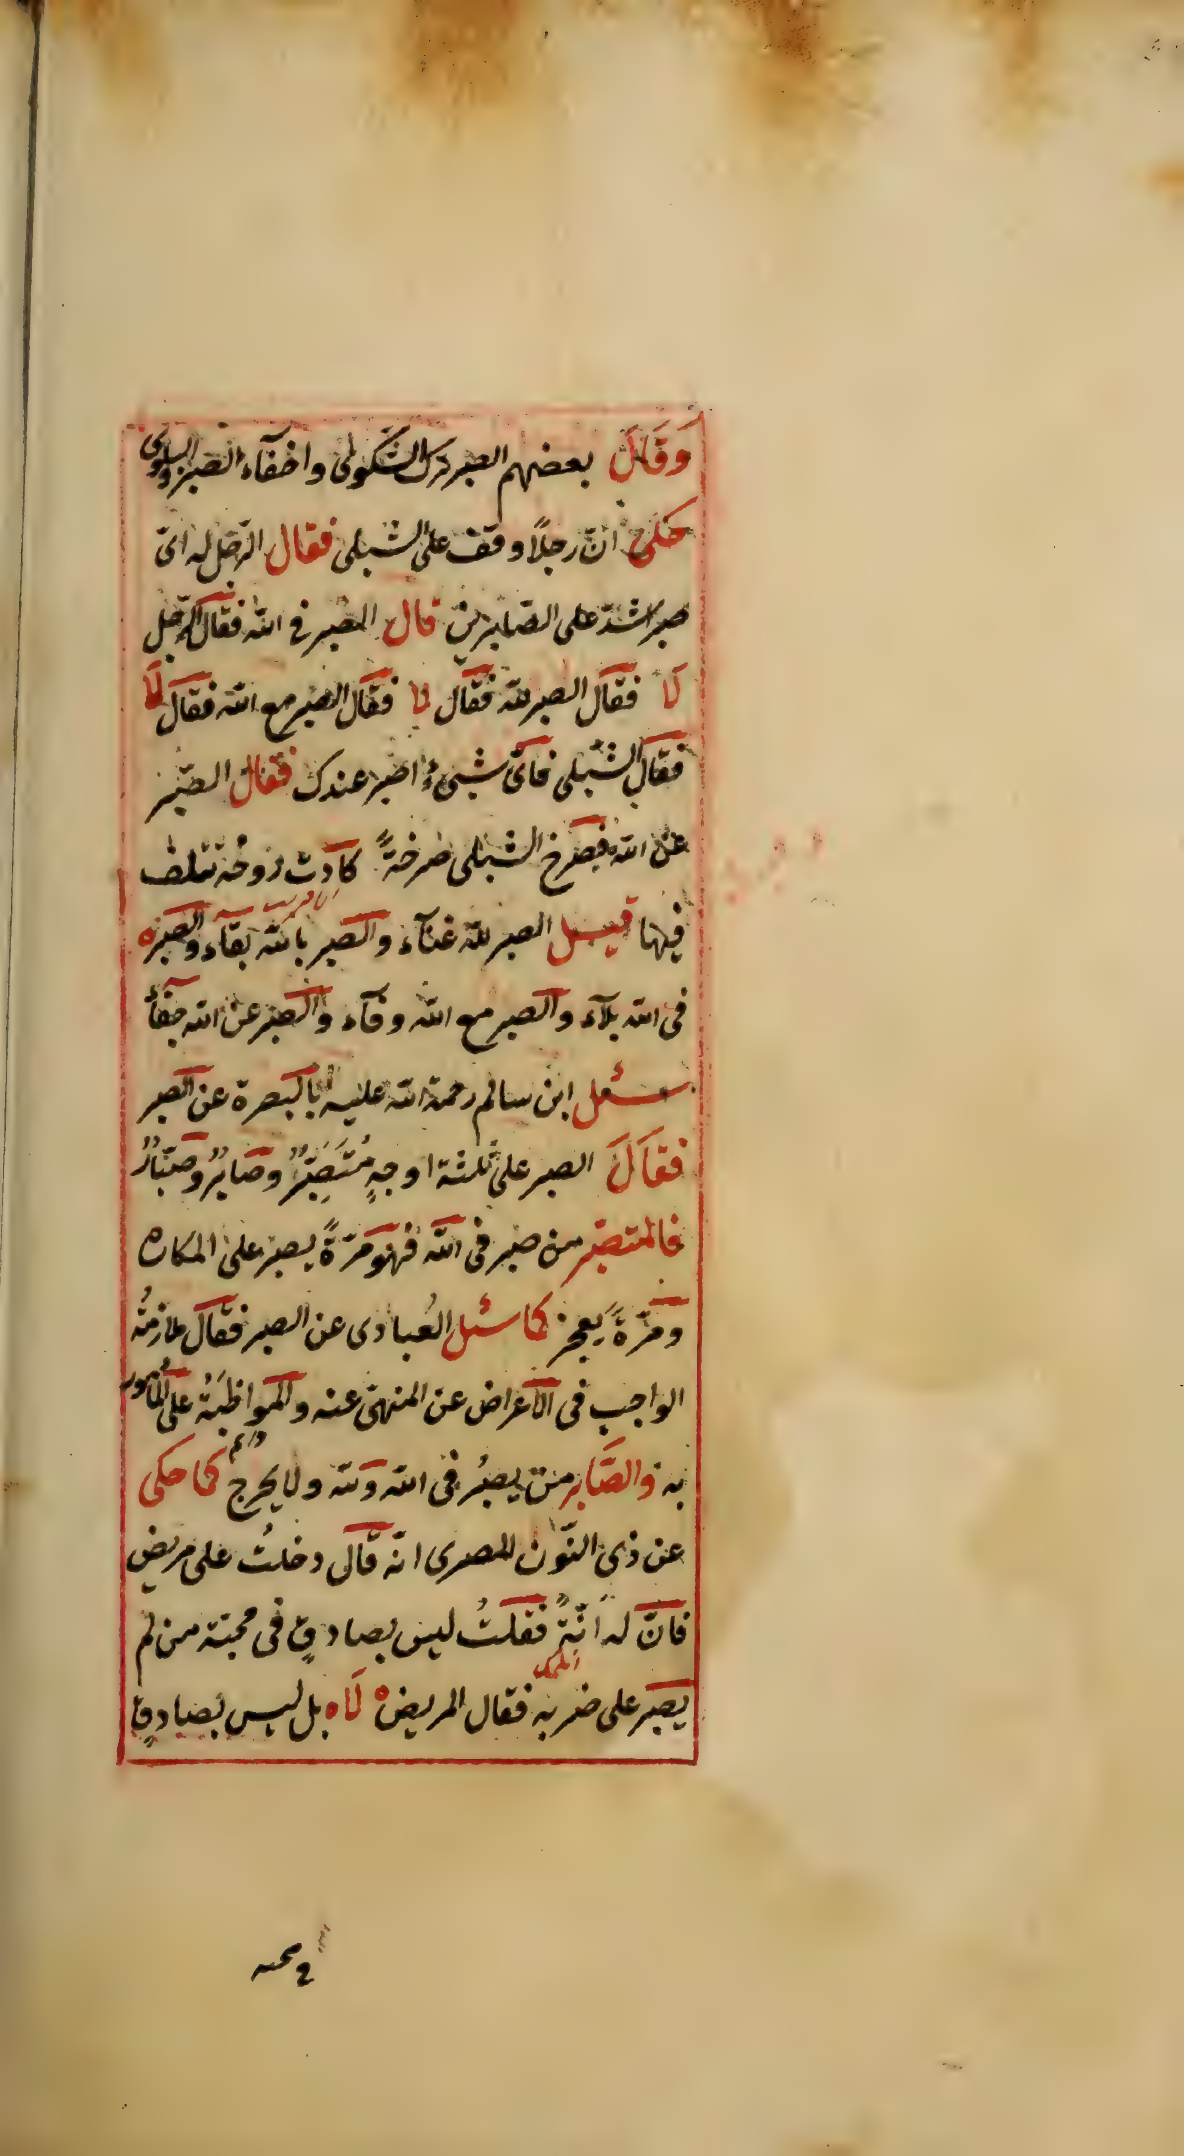 وَقَالَ بعضهم الصبر ترك الشكوى واخفآء الصبر والبلوى
حكى انّ رجلًا وقف على الشبلى فقال الرّجل له اىّ
صبر اشدّ على الصّابرين قال الصبر فى الله فقال الرّجل
لَا فقال الصبر لله فقال لا فقال الصبر مع الله فقال لَا
فقال الشّبلى فاىّ شىءٍ اصبر عندك فقال الصّبر
عن الله فصرخ الشبلى صرخةً كادت روحُه تتلف
فيها قيل الصبر لله غنآء والصبر بالله بقآء والصبر
فى الله بلآء والصبر مع الله وفآء والصبر عن الله جفآءٌ
سئل ابن سالم رحمة الله عليه بالبصرة عن الصبر
فقَالَ الصبر على ثلثة اوجهٍ مُتَصَبِّرٌ وصابرٌ وصبّارٌ
فالمتصبّر من صبر فى الله فهو مرّةً يصبر على المكاره
ومَرّةً يَعجز كما سئل العُبادى عن الصبر فقال ملازمتُه
الواجب فى الاعراض عن المنهىّ عنه والمواظبَتُه على المأمور
به والصّابر من يصبُر فى الله ولله ولا يخرج كما حكى
عن ذى النّون المصرى انّه قال دخلتُ على مريضٍ
فانّ له انّةً فقلتُ ليس بصادقٍ فى محبّته من لم
يصبر على ضربه فقال المريض لَا بل ليس بصادقٍ
فى محبته